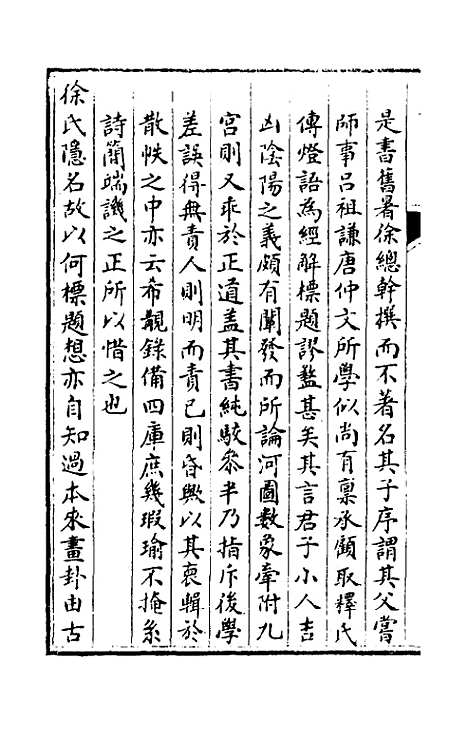 是書舊署徐總幹撰而不著名其子序謂其父嘗
師事吕祖謙唐仲文所學似尚有稟承顧取釋氏
傳燈語為經解標題謬盭甚矣其言君子小人吉
凶陰陽之義頗有闡發而所論河圖數象牽附九
宮則又乖於正道盖其書純駮參半乃指斥後學
差誤得無責人則明而責已則昏歟以其裒輯於
散帙之中亦云希覯錄備四庫庶幾瑕瑜不掩系
詩簡端譏之正所以惜之也
徐氏隱名故以何標題想亦自知過本來畫卦由古